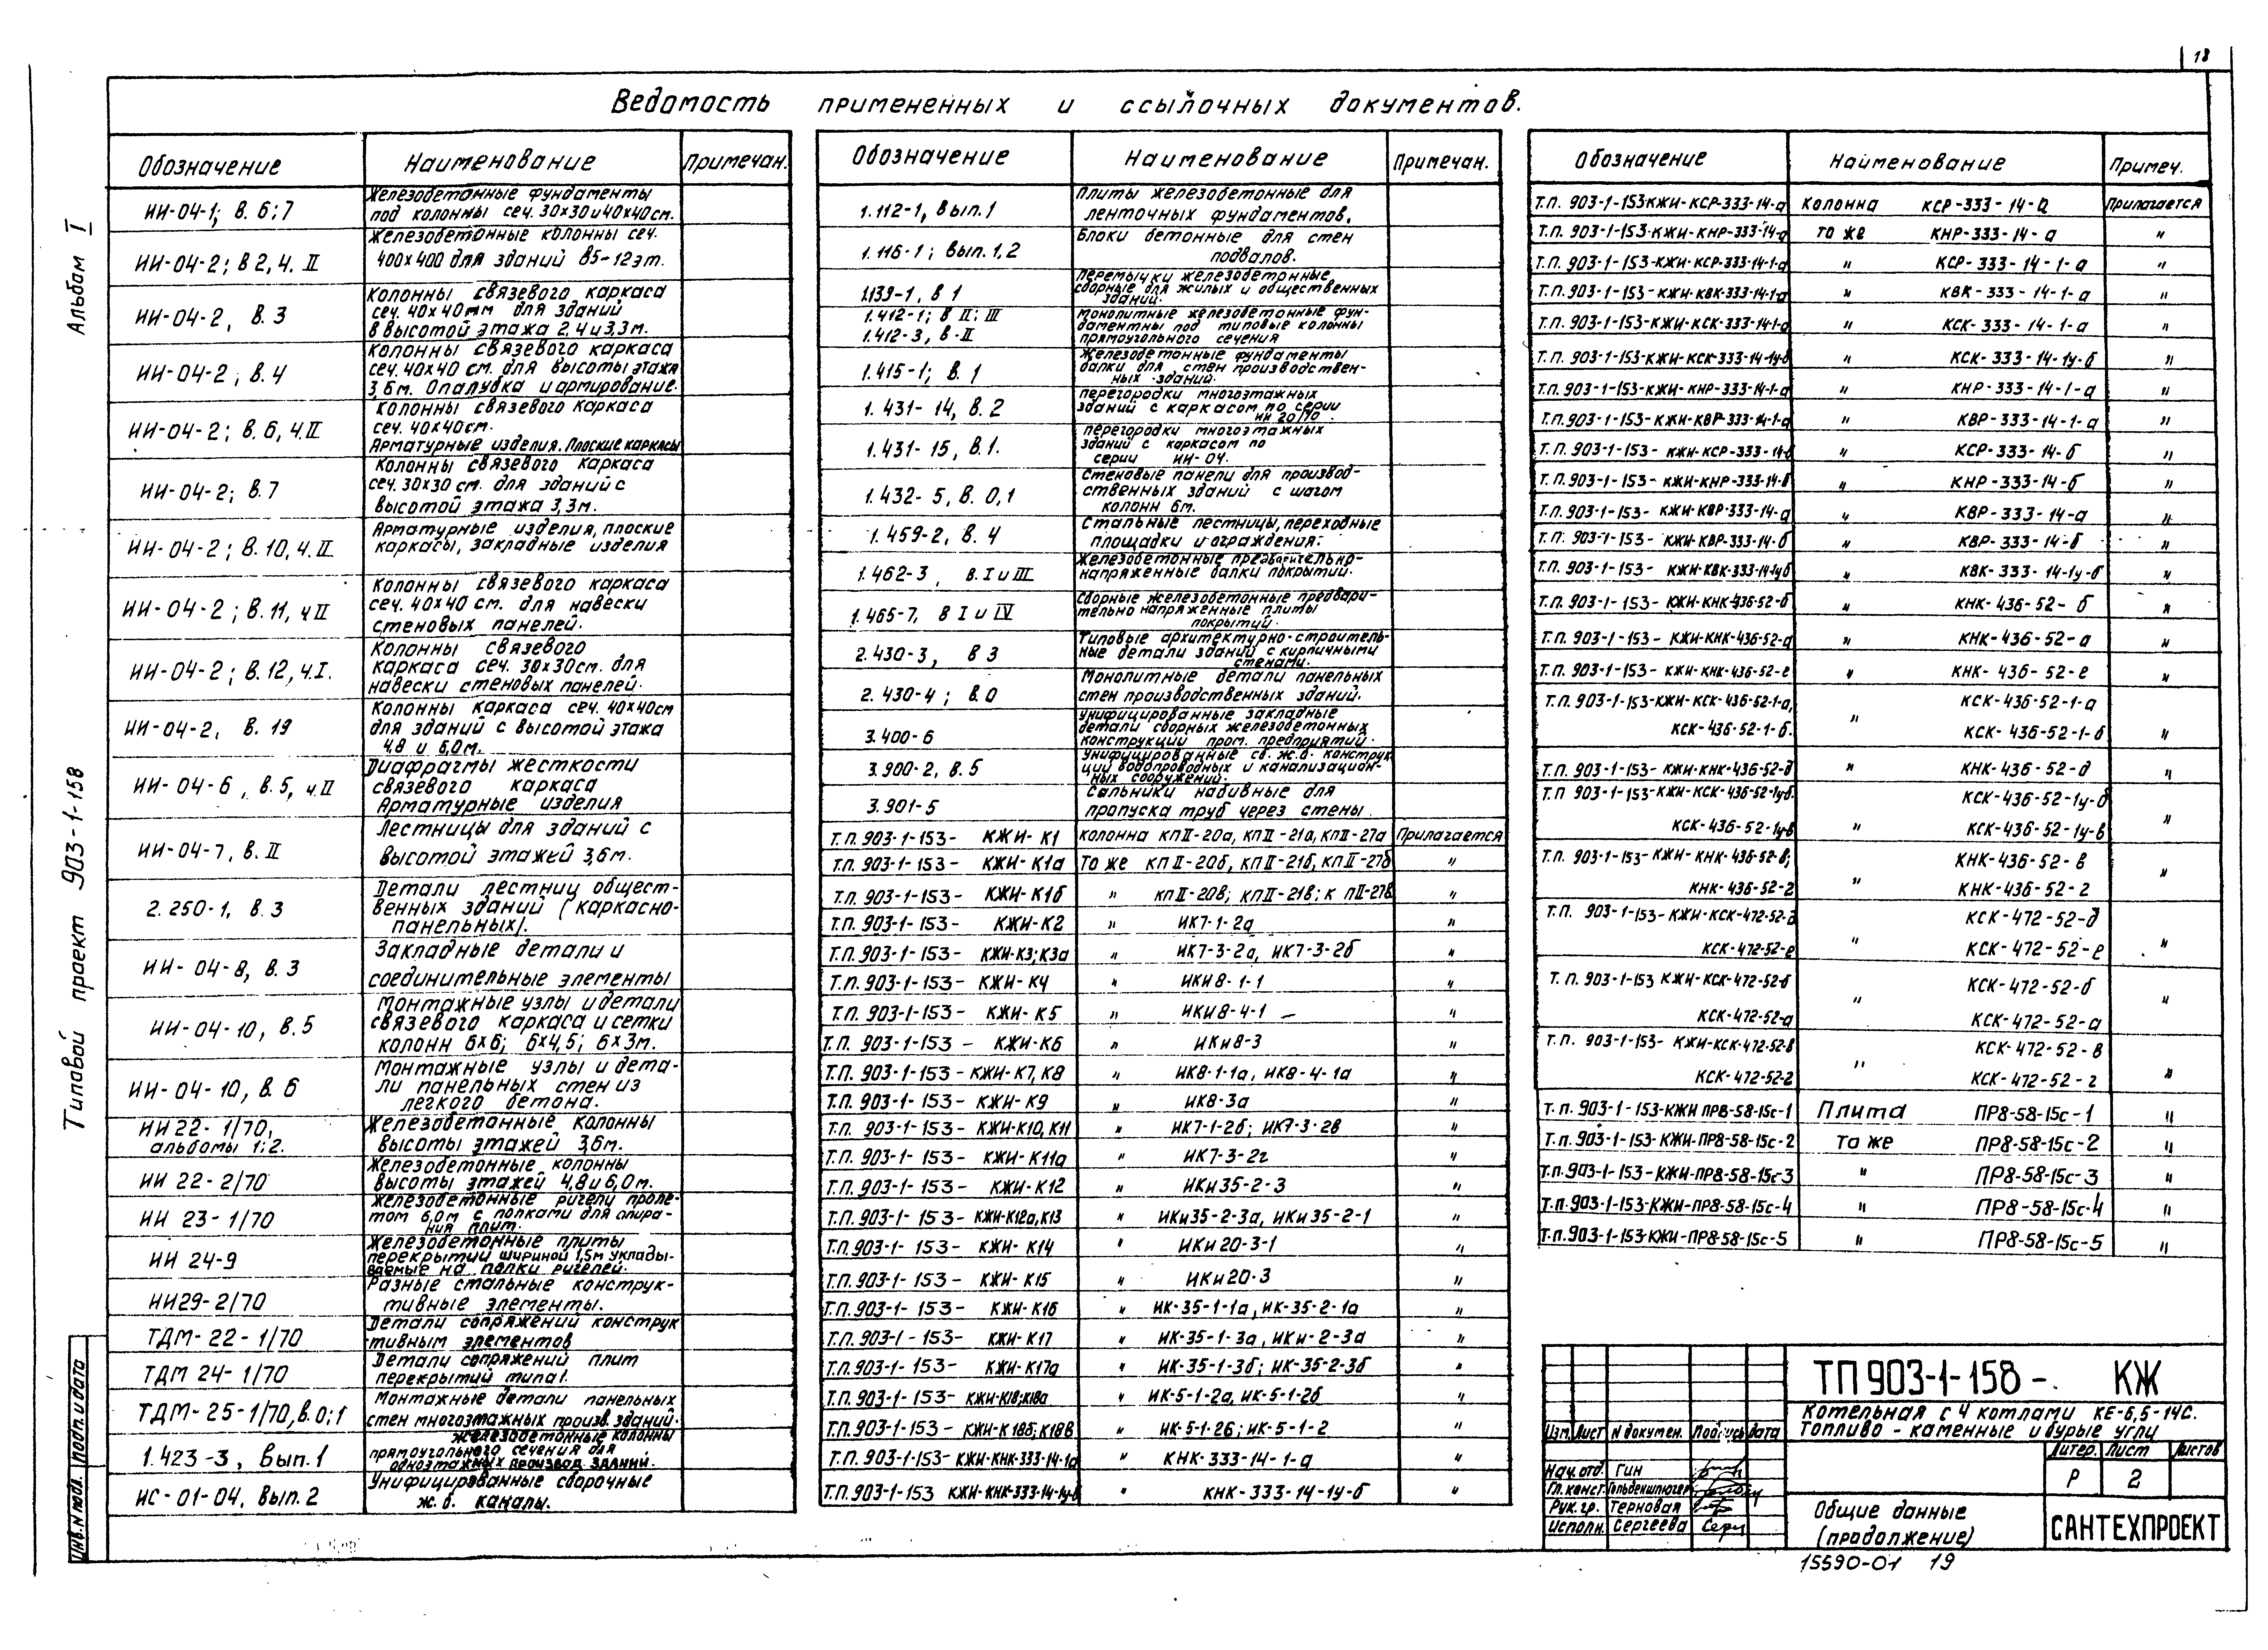 18
Ведомость примененных и ссылочных документов.
Альбом I
Типовой проект 903-1-158
Инв.N подл. Подп. и дата
Обозначение Наименование Примечан.
ИИ-04-1; в. 6; 7
Железобетонные фундаменты
под колонны сеч. 30х30 и 40х40 см.
ИИ-04-2; в 2, ч. II
Железобетонные колонны сеч.
400х400 для зданий в 5-12 эт.
ИИ-04-2, в. 3
Колонны связевого каркаса
сеч. 40х40 мм для зданий
в высотой этажа 2,4 и 3,3 м.
ИИ-04-2; в. 4
Колонны связевого каркаса
сеч. 40х40 см. для высоты этажа
3,6м. Опалубка и армирование.
ИИ-04-2; в. 6, ч. II
Колонны связевого каркаса
сеч. 40х40см.
Арматурные изделия. Плоские каркасы
ИИ-04-2; в. 7
Колонны связевого каркаса
сеч. 30х30 см. для зданий с
высотой этажа 3,3м.
ИИ-04-2; в. 10, ч. II
Арматурные изделия, плоские
каркасы, закладные изделия
ИИ-04-2; в. 11, ч II
Колонны связевого каркаса
сеч. 40х40 см. для навески
стеновых панелей.
ИИ-04-2; в. 12, ч. I.
Колонны связевого
каркаса сеч. 30х30см. для
навески стеновых панелей.
ИИ-04-2, в. 19
Колонны каркаса сеч. 40х40см
для зданий с высотой этажа
4,8 и 6,0м.
ИИ-04-6, в. 5, ч. II
Диафрагмы жесткости
связевого каркаса
Арматурные изделия
ИИ-04-7, в. II
Лестницы для зданий с
высотой этажей 3,6м.
2. 250-1, в. 3
Детали лестниц общест-
венных зданий (каркасно-
панельных).
ИИ-04-8, в. 3
Закладные детали и
соединительные элементы
ИИ-04-10, в. 5
Монтажные узлы и детали
связевого каркаса и сетки
колонн 6х6; 6х4,5; 6х3м.
ИИ-04-10, в. 6
Монтажные узлы и дета-
ли панельных стен из
легкого бетона.
ИИ22-1/70,
альбомы 1; 2.
Железобетонные колонны
высоты этажей 3,6м.
ИИ 22-2/70
Железобетонные колонны
высоты этажей 4,8 и 6,0м.
ИИ 23-1/70
Железобетонные ригели проле-
том 6,0м с полками для опира-
ния плит.
ИИ 24-9
Железобетонные плиты
перекрытий шириной 1,5м уклады-
ваемые на полки ригелей.
ИИ29-2/70
Разные стальные конструк-
тивные элементы.
ТДМ-22-1/70
Детали сопряжений конструк
тивным элементов
ТДМ 24-1/70
Детали сопряжений плит
перекрытий типа 1.
ТДМ-25-1/70, в. 0; 1
Монтажные детали панельных
стен многоэтажных произв. зданий.
1.423-3, Вып. 1
железобетонные колонны
прямоугольного сечения для
одноэтажных производ. зданий.
ИС-01-04, Вып. 2
Унифицированные сборочные
ж. б. каналы.
Обозначение Наименование Примечан.
1.112-1, Вып. 1
Плиты железобетонные для
ленточных фундаментов.
1.116-1; Вып. 1,2
Блоки бетонные для стен
подвалов.
1.139-1, в 1
Перемычки железобетонные
сборные для жилых и общественных
зданий.
1.412-1; в II; III
1.412-3, в-II
Монолитные железобетонные фун-
даментны под типовые колонны
прямоугольного сечения
1.415-1; в. 1
Железобетонные фундаменты
балки для стен производствен-
ных зданий.
1.431-14, в. 2
перегородки многоэтажных
зданий с каркасом по серии
ИИ 20/70.
1.431-15, в. 1.
перегородки многоэтажных
зданий с каркасом по
серии ИИ-04.
1.432-5, в. 0,1
Стеновые панели для производ-
ственных зданий с шагом
колонн 6м.
1.459-2, в. 4
Стальные лестницы, переходные
площадки и ограждения.
1.462-3, в. I и III
Железобетонные предварительно-
напряженные балки покрытий.
1.465-7, в I и IV
Сборные железобетонные предвари-
тельно напряженные плиты
покрытий.
2.430-3, в 3
Типовые архитектурно-строитель-
ные детали зданий с кирпичными
стенами.
2.430-4; в. 0
Монолитные детали панельных
стен производственных зданий.
3.400-6
Унифицированные закладные
детали сборных железобетонных
конструкций пром. предприятий.
3.900-2, в. 5
Унифицированные сб. ж.б. конструк
ций водопроводных и канализацион-
ных сооружений.
3.901-5
Сальники набивные для
пропуска труб через стены.
Т.П. 903-1-153- КЖИ-К1 колонна КПII-20а, КПII-21а, КПII-27а Прилагается
Т.П. 903-1-153- КЖИ-К1а То же КПII-20б, КПII-21б, КПII-27б "
Т.П. 903-1-153- КЖИ-К1б " КПII-20в; КПII-21в; К ПII-27в "
Т.П. 903-1-153- КЖИ-К2 " ИК7-1-2а "
Т.П. 903-1-153- КЖИ-К3; К3а " ИК7-3-2а, ИК7-3-2б "
Т.П. 903-1-153- КЖИ-К4 " ИКИ8-1-1 "
Т.П. 903-1-153- КЖИ-К5 " ИКИ8-4-1 "
Т.П. 903-1-153- КЖИ-К6 " ИКи8-3 "
Т.П. 903-1-153-КЖИ-К7, К8 " ИК8-1-1а, ИК8-4-1а "
Т.П. 903-1-153-КЖИ-К9 " ИК8-3а "
Т.П. 903-1-153-КЖИ-К10, К11 " ИК7-1-2б; ИК7-3-2в "
Т.П. 903-1-153- КЖИ-К11а " ИК7-3-2г "
Т.П. 903-1-153- КЖИ-К12 " ИКи35-2-3 "
Т.П. 903-1-153-КЖИ-К12а, К13 " ИКи35-2-3а, ИКи35-2-1 "
Т.П. 903-1-153- КЖИ-К14 " ИКи20-3-1 "
Т.П. 903-1-153- КЖИ-К15 " ИКи20-3 "
Т.П. 903-1-153- КЖИ-К16 " ИК-35-1-1а, ИК-35-2-1а "
Т.П. 903-1-153- КЖИ-К17 " ИК-35-1-3а, ИКи-2-3а "
Т.П. 903-1-153- КЖИ-К17а " ИК-35-1-3б; ИК-35-2-3б "
Т.П. 903-1-153-КЖИ-К18; К18а " ИК-5-1-2а, ИК-5-1-2б "
Т.П. 903-1-153-КЖИ-К18б; К18В " ИК-5-1-2б; ИК-5-1-2 "
Т.П. 903-1-153-КЖИ-КНК-333-14-1а " КНК-333-14-1-а "
Т.П. 903-1-153 КЖИ-КНК-333-14-1у-б " КНК-333-14-1у-б "
Обозначение Наименование Примеч.
Т.П. 903-1-153КЖИ-КСР-333-14-а колонна КСР-333-14-а Прилагается
Т.П. 903-1-153-КЖИ-КНР-333-14-а то же КНР-333-14-а "
Т.П. 903-1-153-КЖИ-КСР-333-14-1-а " КСР-333-14-1-а "
Т.П. 903-1-153-КЖИ-КВК-333-14-1-а " КВК-333-14-1-а "
Т.П. 903-1-153-КЖИ-КСК-333-14-1-а " КСК-333-14-1-а "
Т.П. 903-1-153-КЖИ-КСК-333-14-1у-б " КСК-333-14-1у-б "
Т.П. 903-1-153-КЖИ-КНР-333-14-1-а " КНР-333-14-1-а "
Т.П. 903-1-153-КЖИ-КВР-333-14-1-а " КВР-333-14-1-а "
Т.П. 903-1-153-КЖИ-КСР-333-14-б " КСР-333-14-б "
Т.П. 903-1-153-КЖИ-КНР-333-14-б " КНР-333-14-б "
Т.П. 903-1-153-КЖИ-КВР-333-14-а " КВР-333-14-а "
Т.П. 903-1-153-КЖИ-КВР-333-14-б " КВР-333-14-б "
Т.П. 903-1-153-КЖИ-КВК-333-14-1уб " КВК-333-14-1у-б "
Т.П. 903-1-153-КЖИ-КНК-436-52-б " КНК-436-52-б "
Т.П. 903-1-153-КЖИ-КНК-436-52-а " КНК-436-52-а "
Т.П. 903-1-153-КЖИ-КНК-436-52-е " КНК-436-52-е "
Т.П. 903-1-153-КЖИ-КСК-436-52-1-а, КСК-436-52-1-а
КСК-436-52-1-б. " КСК-436-52-1-б "
Т.П. 903-1-153-КЖИ-КНК-436-52-д " КНК-436-52-д "
Т.П 903-1-153-КЖИ-КСК-436-52-1уб. КСК-436-52-1у-б
КСК-436-52-1у-в " КСК-436-52-1у-в "
Т.П. 903-1-153-КЖИ-КНК-436-52-в; КНК-436-52-в
КНК-436-52-г " КНК-436-52-г "
Т.П. 903-1-153-КЖИ-КСК-472-52-д КСК-472-52-д
КСК-472-52-е " КСК-472-52-е "
Т.П. 903-1-153 КЖИ-КСК-472-52-б КСК-472-52-б
КСК-472-52-а " КСК-472-52-а "
Т.П. 903-1-153-КЖИ-КСК-472-52-в КСК-472-52-в
КСК-472-52-г " КСК-472-52-г "
Т.П. 903-1-153-КЖИ ПР8-58-15с-1 Плита ПР8-58-15с-1 "
Т.П. 903-1-153-КЖИ-ПР8-58-15с-2 То же ПР8-58-15с-2 "
Т.П. 903-1-153-КЖИ-ПР8-58-15с-3 " ПР8-58-15с-3 "
Т.П. 903-1-153-КЖИ-ПР8-58-15с-4 " ПР8-58-15с-4 "
Т.П. 903-1-153-КЖИ-ПР8-58-15с-5 " ПР8-58-15с-5 "
ТП 903-1-158-. КЖ
Котельная с 4 котлами КЕ-6,5-14С.
Топливо - каменные и бурые угли
Изм. Лист N докумен. Подпись дата
Литер. Лист Листов
Р 2
Нач. отд. Гин
Гл. конст. Гольденшлюгер
Рук. гр. Терновая
Исполн. Сергеева
Общие данные
(продолжение)
САНТЕХПРОЕКТ
15590-01 19